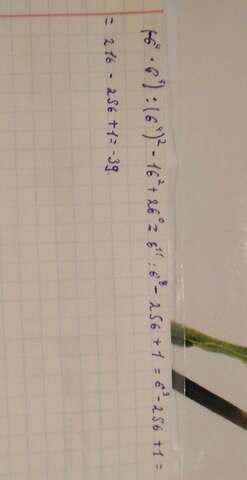 (6⁴ · 6⁷) : (6⁴)² - 16² + 26⁰ = 6¹¹ : 6⁸ - 256 + 1 = 6³ - 256 + 1 =
= 216 - 256 + 1 = -39